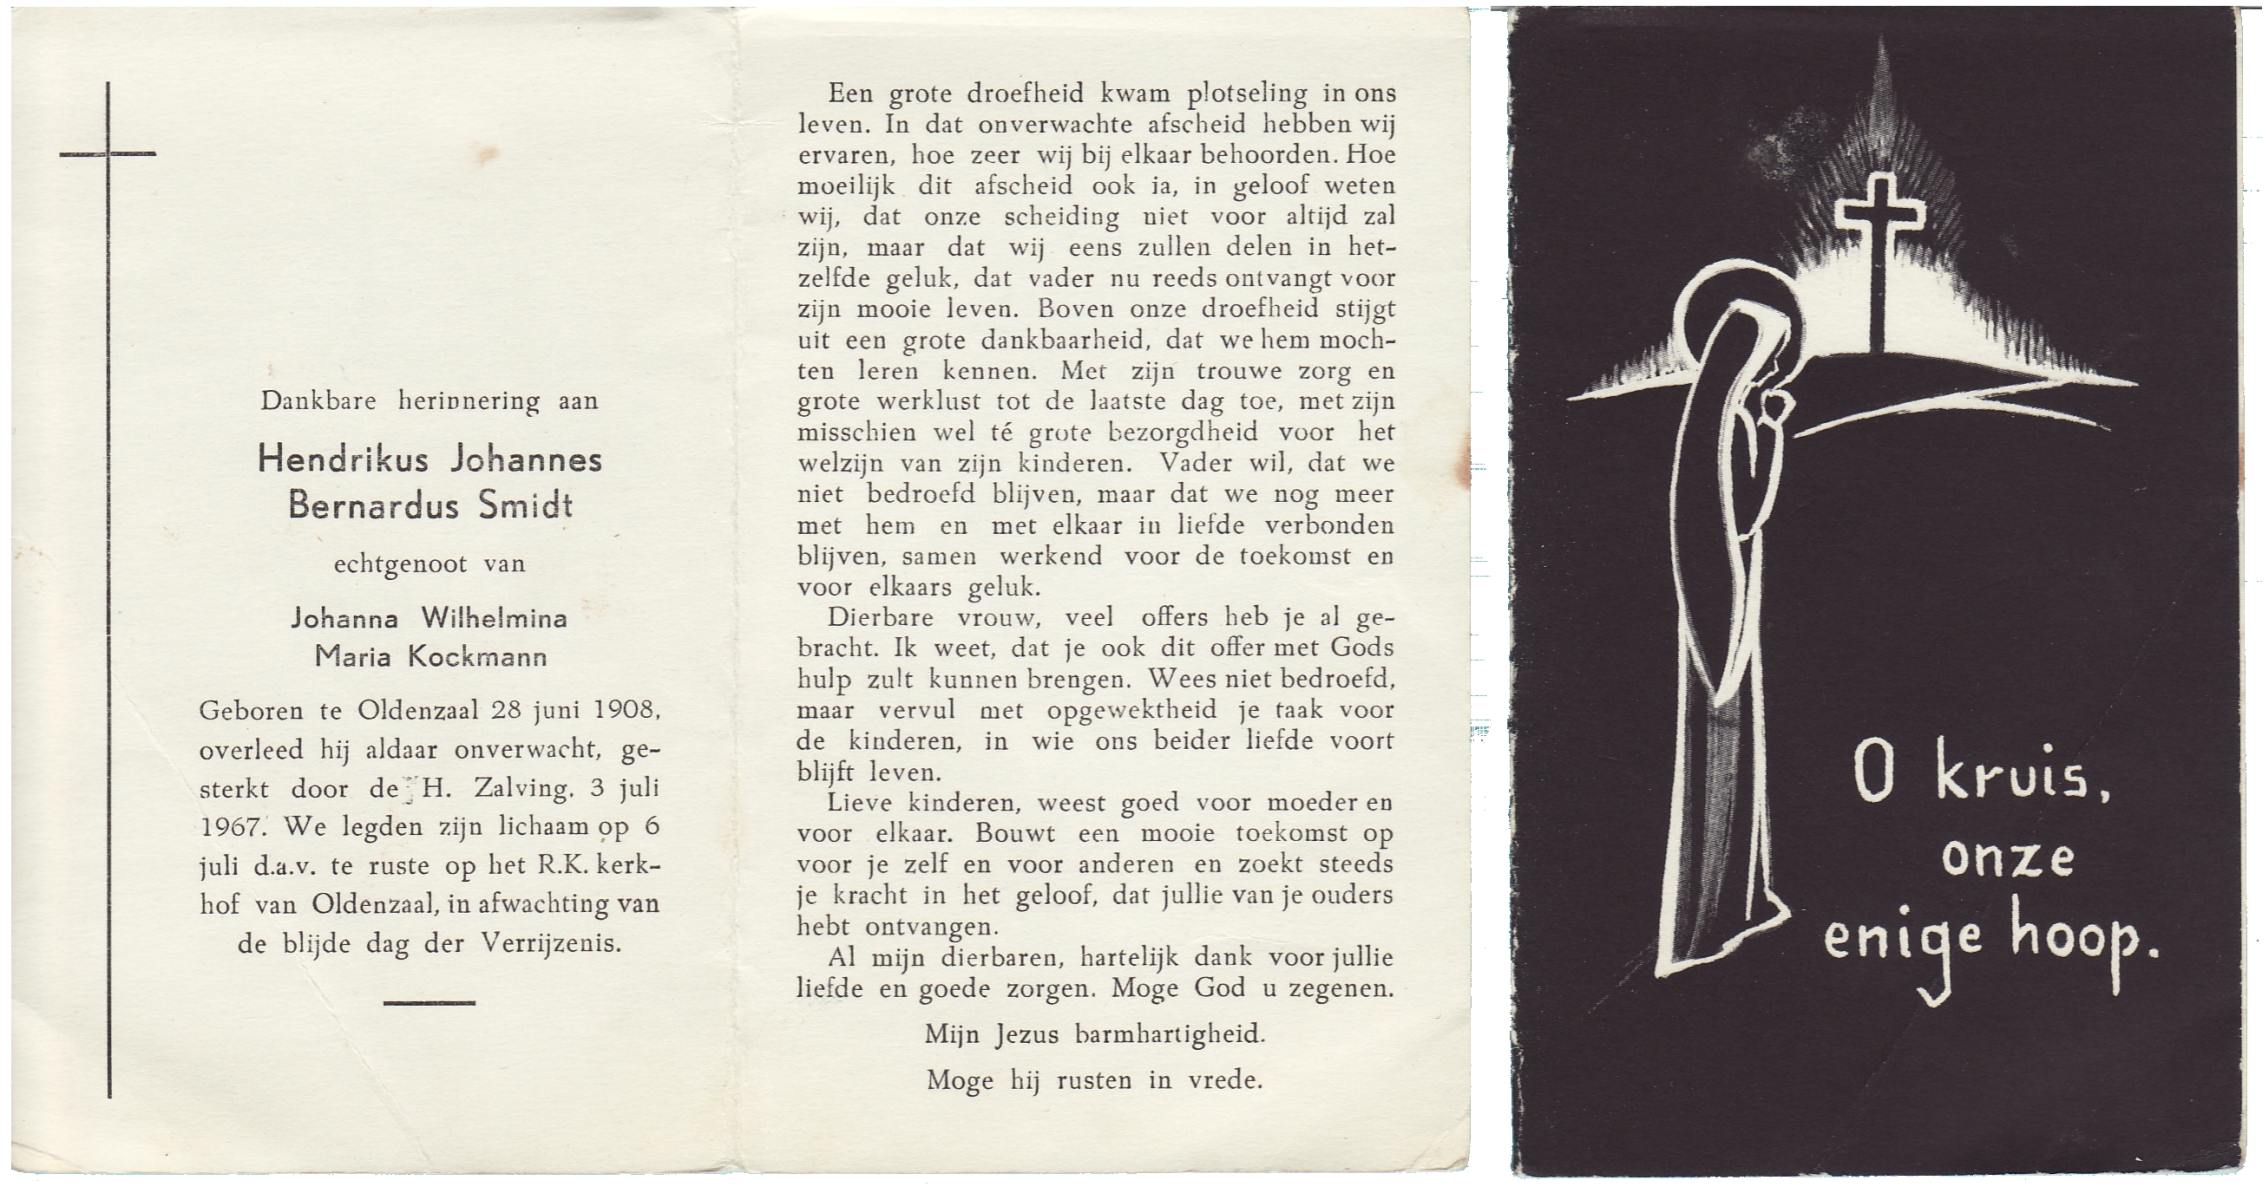 Dankbare herinnering aan
Hendrikus Johannes
Bernardus Smidt
echtgenoot van
Johanna Wilhelmina
Maria Kockmann
Geboren te Oldenzaal 28 juni 1908,
overleed hij aldaar onverwacht, ge-
sterkt door de H. Zalving, 3 juli
1967. We legden zijn lichaam op 6
juli d.a.v. te ruste op het R.K. kerk-
hof van Oldenzaal, in afwachting van
de blijde dag der Verrijzenis.
Een grote droefheid kwam plotseling in ons
leven. In dat onverwachte afscheid hebben wij
ervaren, hoe zeer wij bij elkaar behoorden. Hoe
moeilijk dit afscheid ook ia, in geloof weten
wij, dat onze scheiding niet voor altijd zal
zijn, maar dat wij eens zullen delen in het-
zelfde geluk, dat vader nu reeds ontvangt voor
zijn mooie leven. Boven onze droefheid stijgt
uit een grote dankbaarheid, dat we hem moch-
ten leren kennen. Met zijn trouwe zorg en
grote werklust tot de laatste dag toe, met zijn
misschien wel té grote bezorgdheid voor het
welzijn van zijn kinderen. Vader wil, dat we
niet bedroefd blijven, maar dat we nog meer
met hem en met elkaar in liefde verbonden
blijven, samen werkend voor de toekomst en
voor elkaars geluk.
Dierbare vrouw, veel offers heb je al ge-
bracht. Ik weet, dat je ook dit offer met Gods
hulp zult kunnen brengen. Wees niet bedroefd,
maar vervul met opgewektheid je taak voor
de kinderen, in wie ons beider liefde voort
blijft leven.
Lieve kinderen, weest goed voor moeder en
voor elkaar. Bouwt een mooie toekomst op
voor je zelf en voor anderen en zoekt steeds
je kracht in het geloof, dat jullie van je ouders
hebt ontvangen.
Al mijn dierbaren, hartelijk dank voor jullie
liefde en goede zorgen. Moge God u zegenen.
Mijn Jezus barmhartigheid.
Moge hij rusten in vrede.
O kruis,
onze
enige hoop.